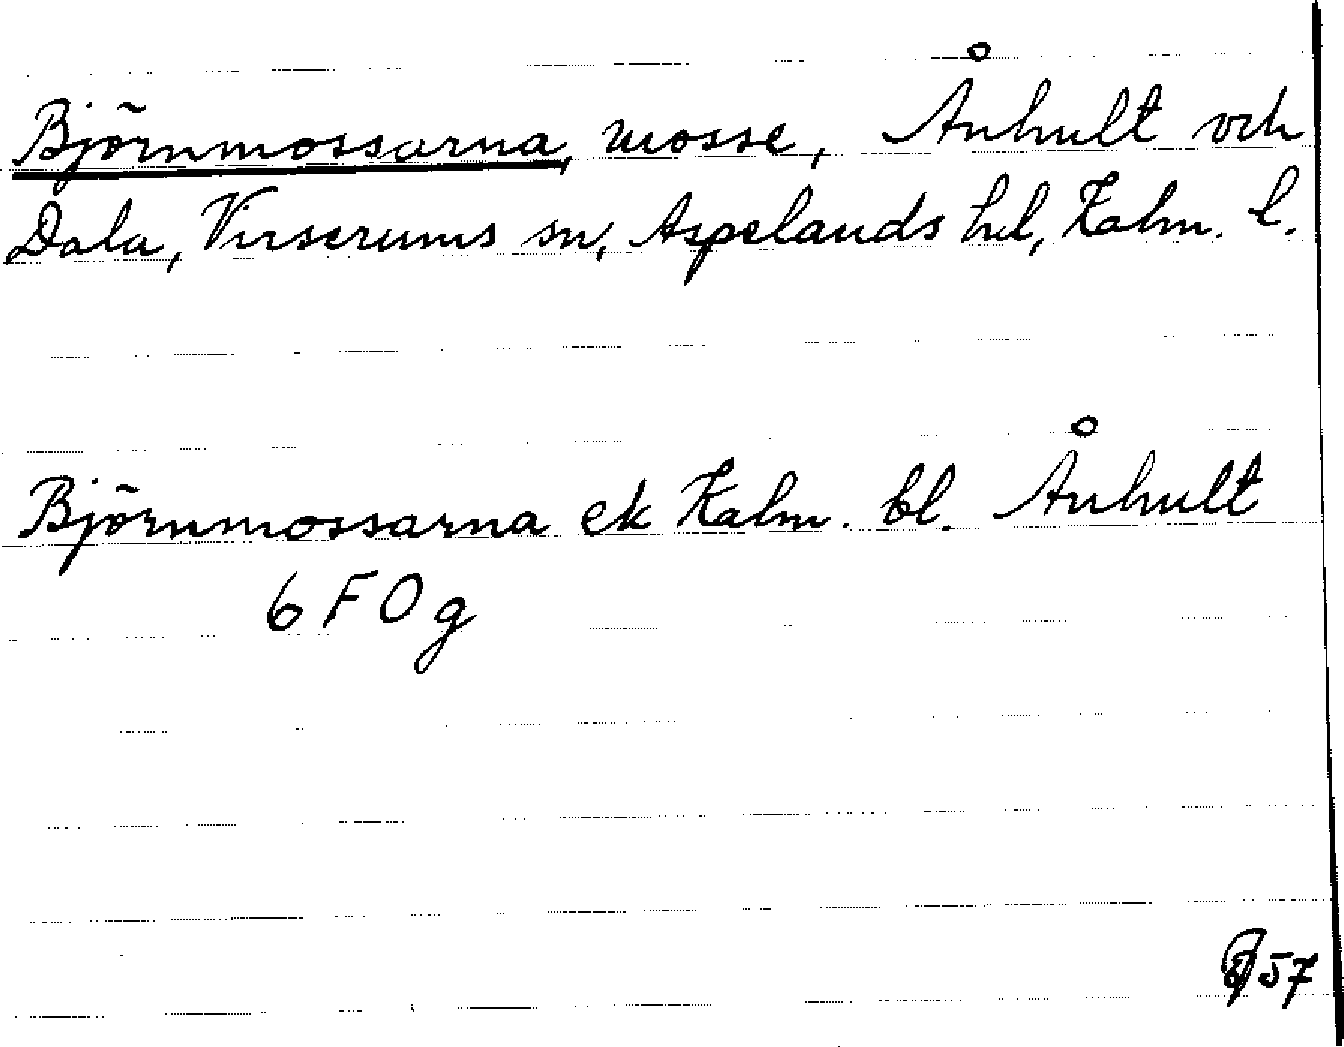 Björnmossarna, mosse, Ånhult och
Dala, Virserums sn, Aspelands hd, Kalm. l.
Björnmossarna ek Kalm. bl. Ånhult
6 F 0 g
57